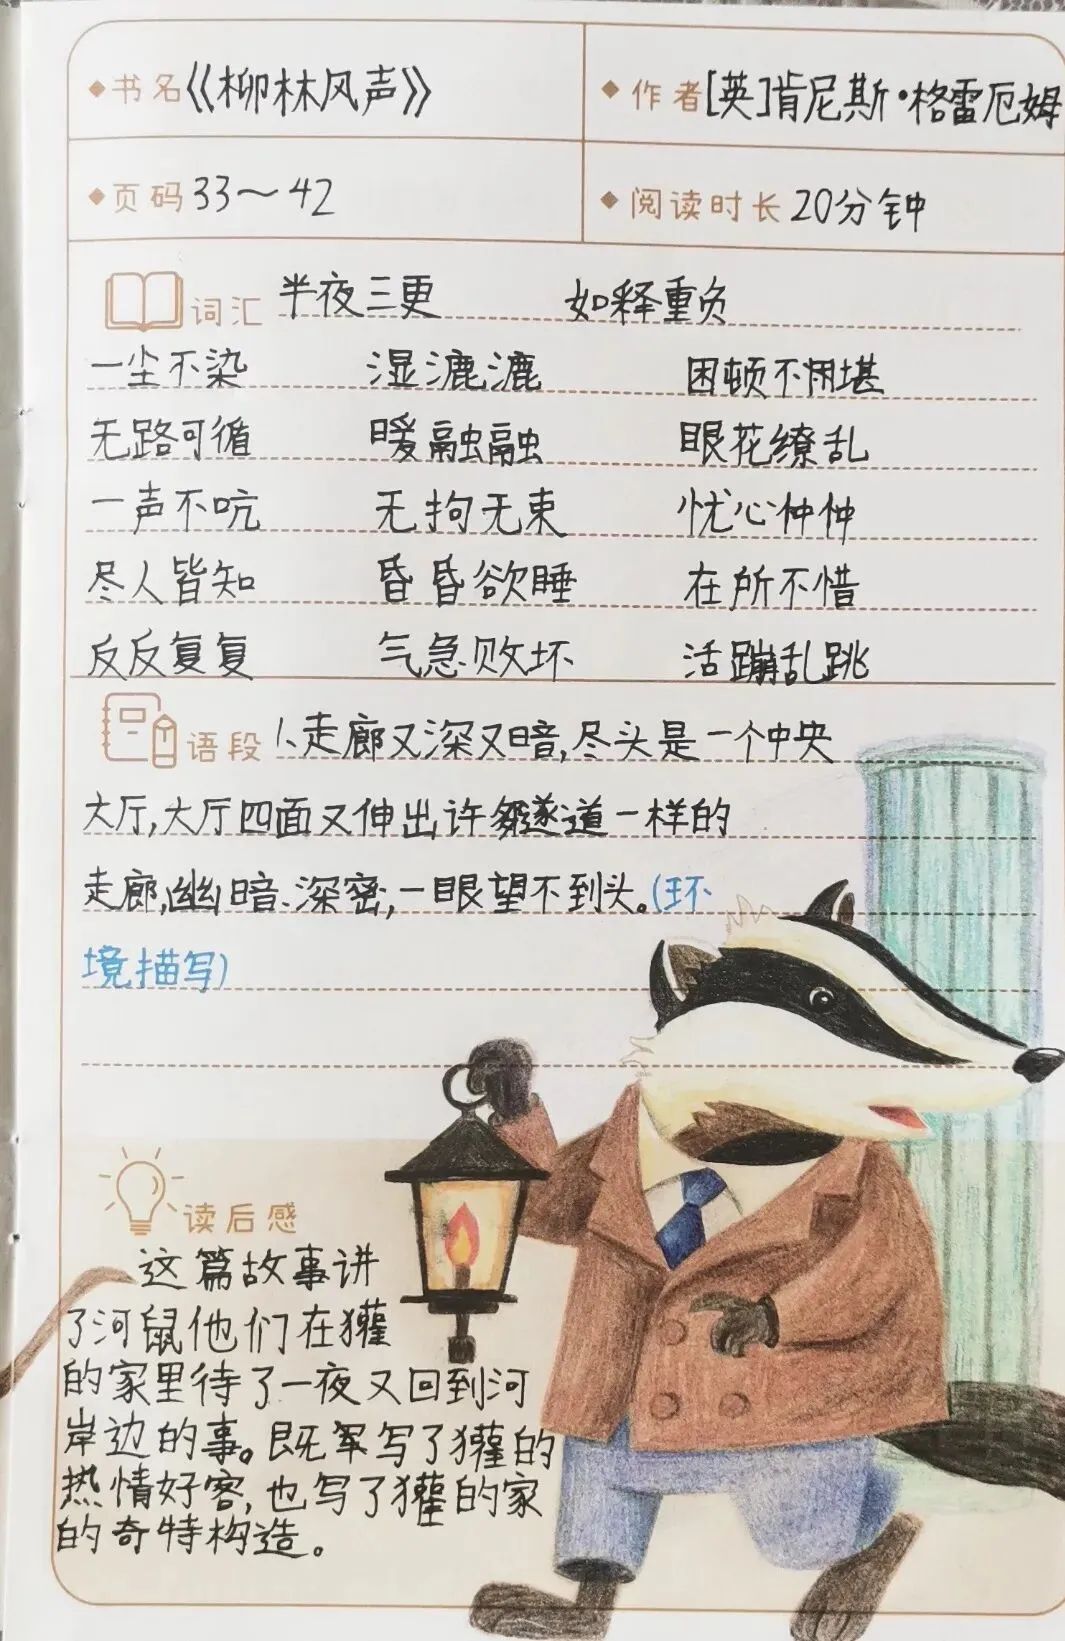 书名《柳林风声》 作者[英]肯尼斯·格雷厄姆
页码33～42 阅读时长20分钟
词汇 半夜三更 如释重负
一尘不染 湿漉漉 困顿不堪
无路可循 暖融融 眼花缭乱
一声不吭 无拘无束 忧心忡忡
尽人皆知 昏昏欲睡 在所不惜
反反复复 气急败坏 活蹦乱跳
语段 1、走廊又深又暗,尽头是一个中央
大厅,大厅四面又伸出许多隧道一样的
走廊,幽暗、深密,一眼望不到头。(环
境描写)
读后感
这篇故事讲
了河鼠他们在獾
的家里待了一夜又回到河
岸边的事。既写了獾的
热情好客,也写了獾的家
的奇特构造。